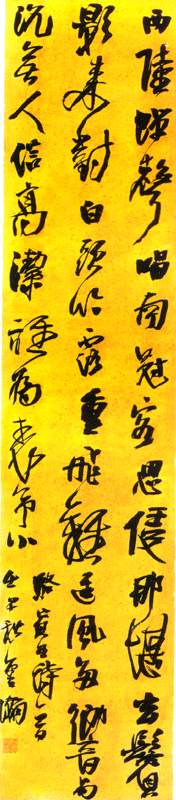 西陸蟬聲唱南冠客思侵那堪玄鬢
影来對白頭吟露重飛難進風多響易
沉無人信高潔誰為表予心
駱賓王詩一首